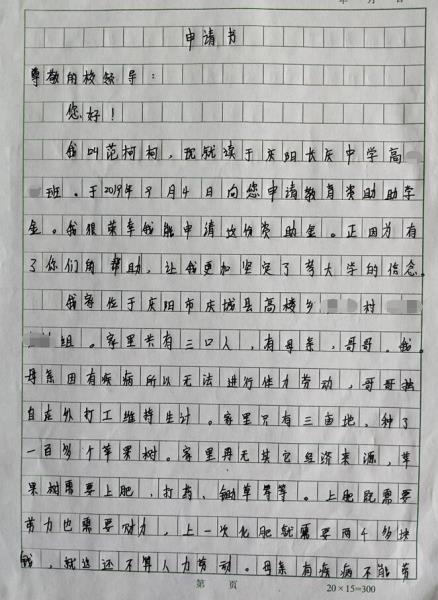 年 月 日
申请书
尊敬的校领导：
您好！
我叫范柯柯，现就读于庆阳长庆中学高
班。于2019年9月4日向您申请教育资助助学
金。我很荣幸我能申请这份资助金。正因为有
了你们的帮助，让我更加坚定了考大学的信念。
我家位于庆阳市庆城县高楼乡 村
组。家里共有三口人，有母亲，哥哥。我。
母亲因有疾病所以无法进行体力劳动，哥哥独
自在外打工维持生计。家里只有三亩地，种了
一百多个苹果树。家里再无其它经济来源，苹
果树需要上肥，打药、锄草等等。上肥既需要
劳力也需要财力，上一次化肥就需要两千多块
钱，就这还不算人力劳动。母亲有疾病不能劳
第 页
20×15=300